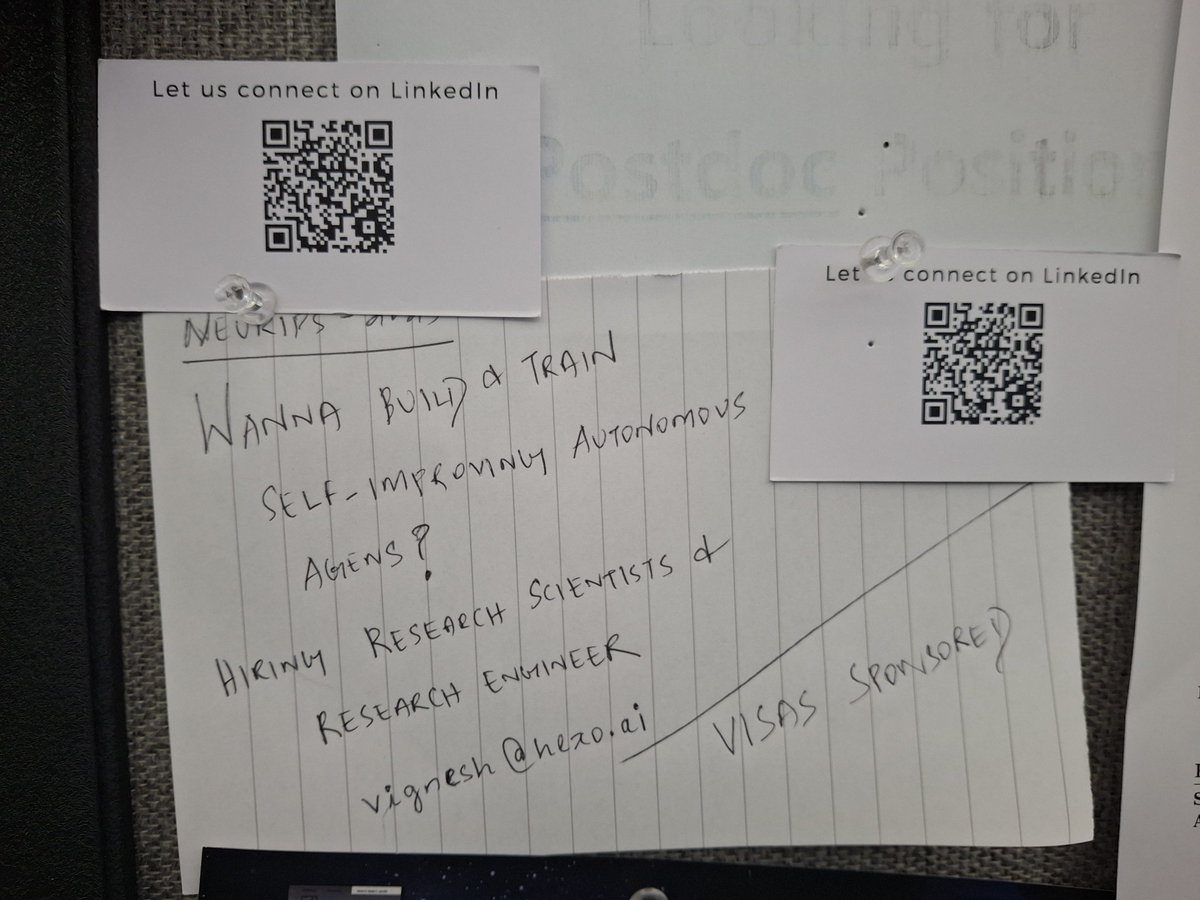 Looking for
Postdoc Position
Let us connect on LinkedIn
Let connect on LinkedIn
NEURIPS
WANNA BUILD & TRAIN
SELF-IMPROVING AUTONOMOUS
AGENS?
HIRING RESEARCH SCIENTISTS &
RESEARCH ENGINEER
vignesh@hexo.ai
VISAS SPONSORED